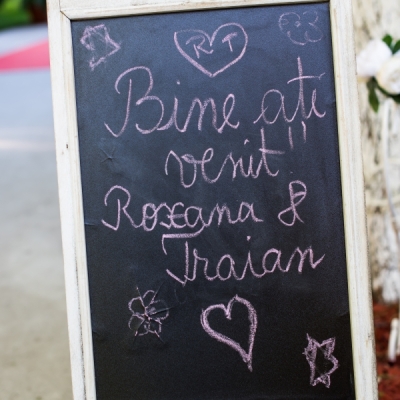 R T
Bine ati
venit!!
Roxana &
Traian